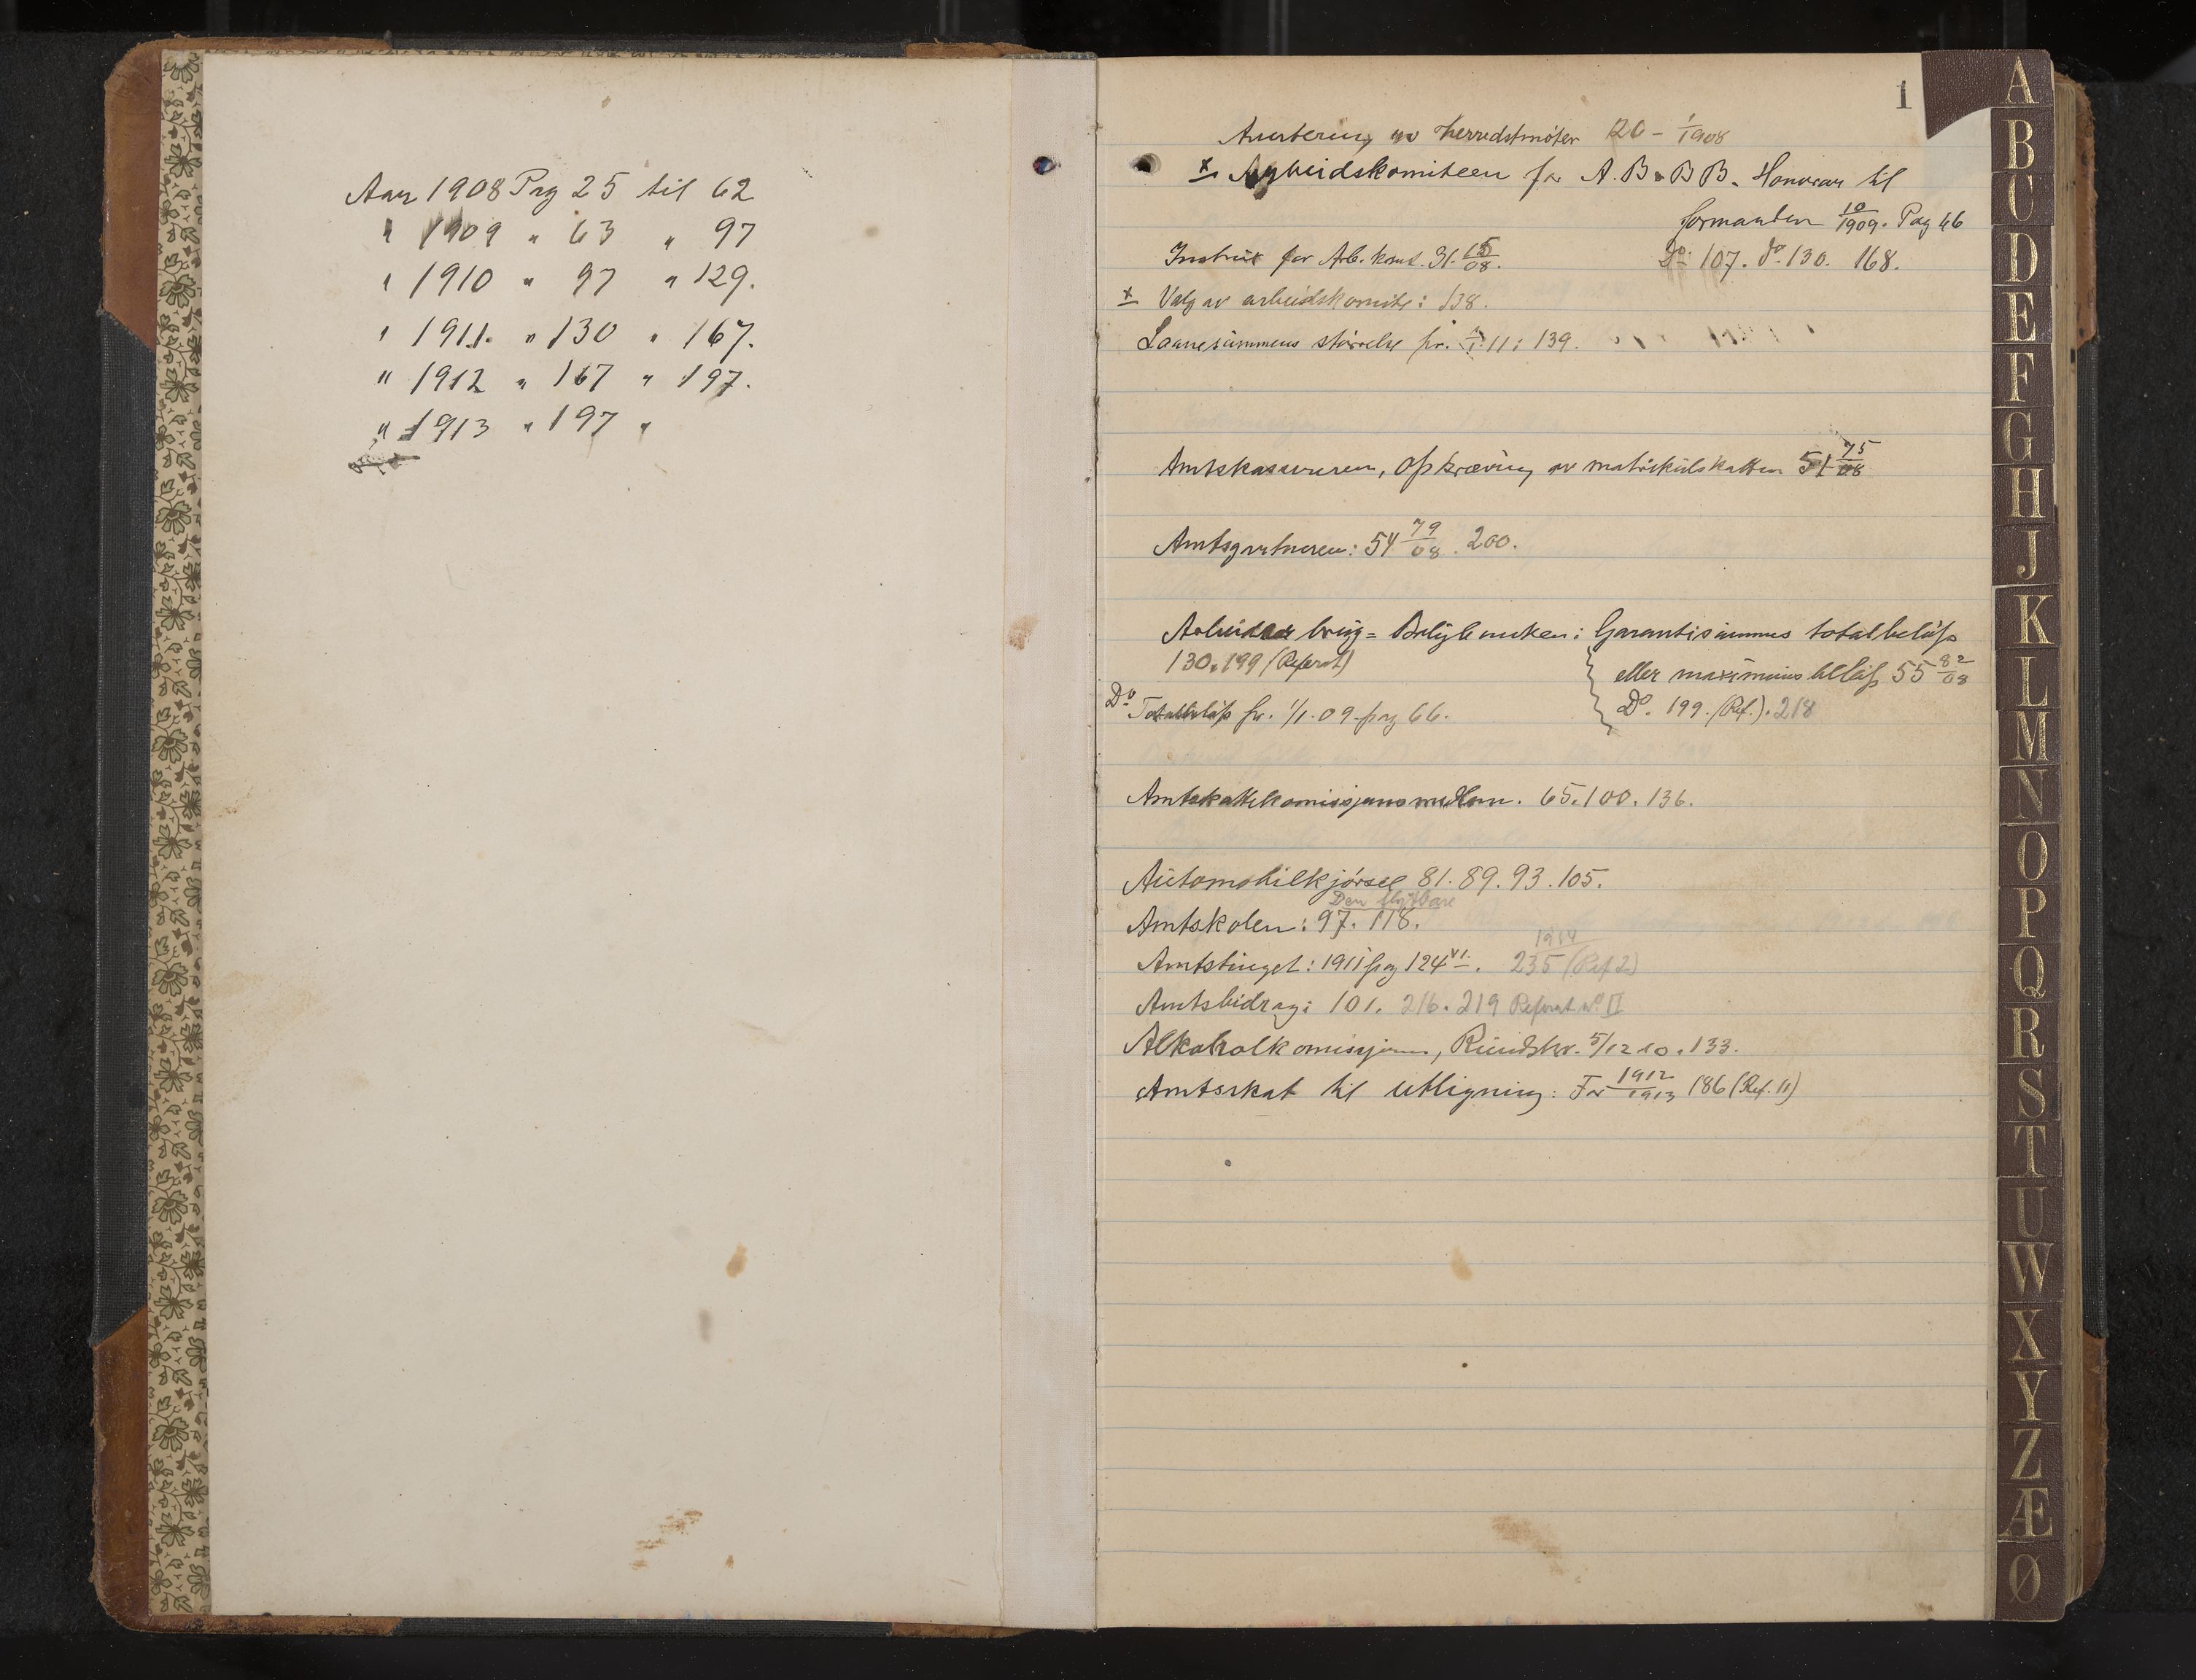 Aar 1908 Pag 25 til 62
" 1909 " 63 " 97
" 1910 " 97 " 129.
" 1911. " 130 " 167.
" 1912 " 167 " 197.
" 1913 " 197 "
1
Avertering av herredsmøter 26 - 1/1908
x Arbeidskomiteen for A. B & B B. Honorar til
formanden 10/1909. Pag 66
Instrux for Arb. kom. 31. 15/08.
Do: 107. do. 130. 168.
x Valg av arbeidskomite: 138.
Laanesummens størrelse pr. 1/1. 11: 139.
Amtskassereren, opkrævning av matrikulskatten 51 75/08
Amtsgartneren: 54 79/08. 200.
Arbeiderbrug = Boligbanken: Garantisummens totalbeløp
130. 199 (Referat)
eller maximumsbeløp 55 82/08
Do. 199. (Ref.). 218
Do Totalbeløp pr. 1/1. 09 pag 66.
Amtskattekomisjonsmedlem. 65. 100. 136.
Automobilkjørsel 81. 89. 93. 105.
Den flytbare
Amtskolen: 97. 118.
1914
Amtstinget: 1911 pag 124 VI. 235 (Ref 2)
Amtsbidrag: 101. 216. 219 Referat No. II
Alkoholkomisjonen, Rundskr. 5/12 10. 133.
Amtsskat til utligning: For 1912/1913 186 (Ref. 11)
A
B
C
D
E
F
G
H
J
K
L
M
N
O
P
Q
R
S
T
U
W
X
Y
Z
Æ
Ø